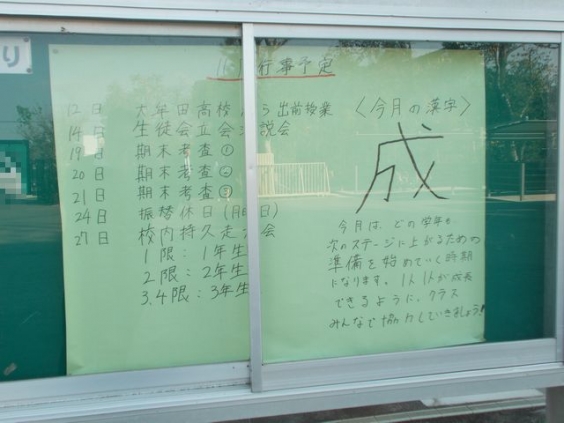 り
行事予定
12日 大牟田高校 出前授業
14日 生徒会立会 説会
19日 期末考査①
20日 期末考査②
21日 期末考査③
24日 振替休日(月 日)
27日 校内持久走 会
1限:1年生
2限:2年生
3.4限:3年生
〈今月の漢字〉
成
今月は、どの学年も
次のステージに上がるための
準備を始めていく時期
になります。1人1人が成長
できるように、クラス
みんなで協力していきましょう!